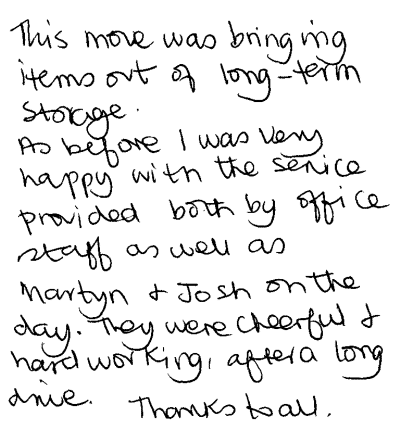 This move was bringing
items out of long-term
storage.
As before I was very
happy with the service
provided both by office
staff as well as
Martyn & Josh on the
day. They were cheerful &
hard working, after a long
drive. Thanks to all.